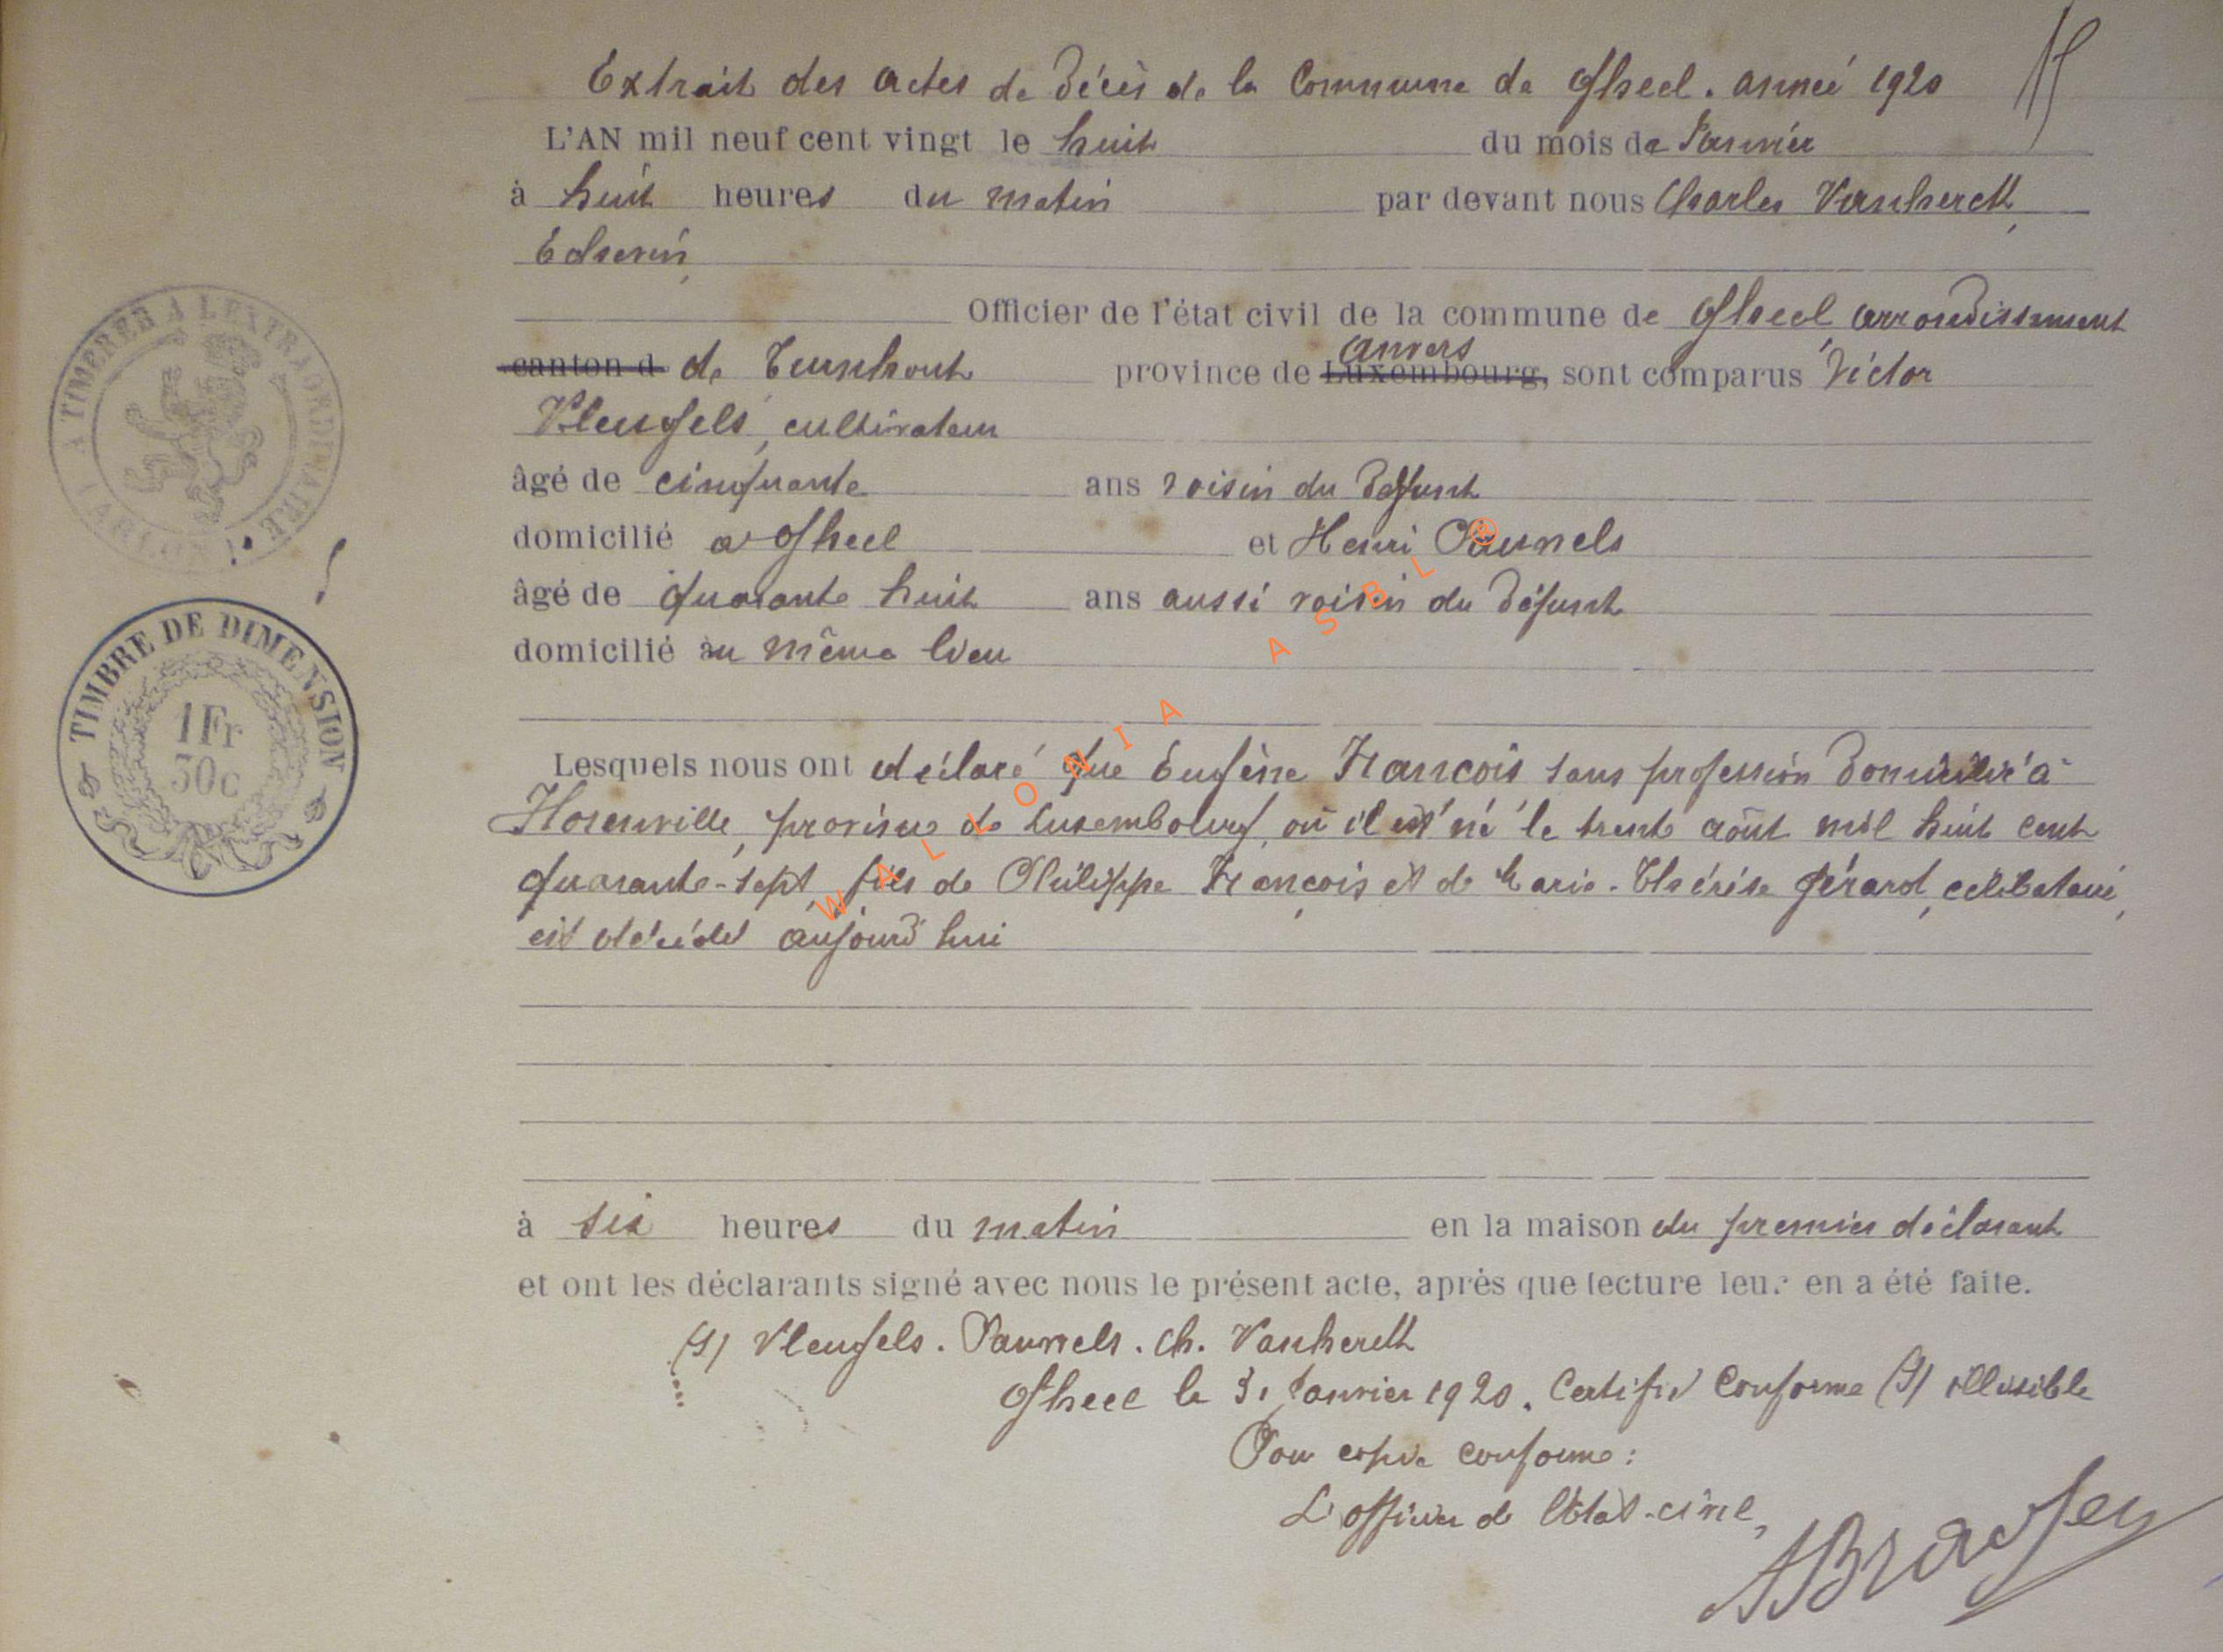 Extrait des actes de décès de la Commune de Gheel. année 1920
L'AN mil neuf cent vingt le huit du mois de Janvier
à huit heures du matin par devant nous Charles Vanherck,
Echevin,
Officier de l'état civil de la commune de Gheel, arrondissement
canton d de Turnhout province de Luxembourg, Anvers sont comparus Victor
Vleugels, cultivateur
âgé de cinquante ans voisin du défunt
domicilié à Gheel et Henri Pauwels
âgé de quarante huit ans aussi voisin du défunt
domicilié au même lieu
Lesquels nous ont déclaré que Eugène François sans profession domicilié à
Horenville, province de Luxembourg, où il est né le trente août mil huit cent
quarante-sept, fils de Philippe François et de Marie-Thérèse Gérard, célibataire,
est décédé aujourd'hui
à six heures du matin en la maison du premier déclarant
et ont les déclarants signé avec nous le présent acte, après que lecture leur en a été faite.
(s) Vleugels. Pauwels. Ch. Vanherck
Gheel le 31 Janvier 1920. Certifié Conforme (s) illisible
Pour copie conforme:
L'officier de l'Etat-civil,
A TIMBRER A L'EXTRAORDINAIRE
ARLON
TIMBRE DE DIMENSION
1Fr
50c
WALLONIA ASBL @